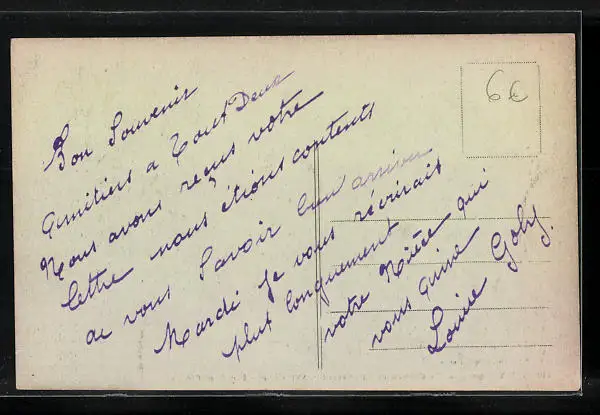 Bon Souvenir
Amitiers a Tout Deux
Nous avons reçus votre
lettre nous étions contents
de vous Savoir bien arriver
Mardi Je vous récrirais
plus longuement
votre Nièce qui
vous aime
Louise Goby.
6€